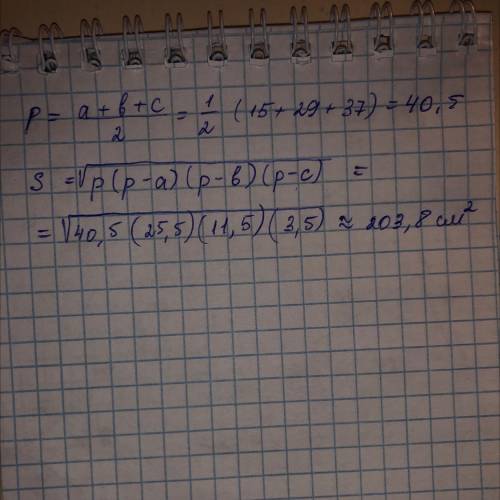 p = a + в + c / 2 = 1/2 (15 + 29 + 37) = 40,5
S = √p(p-a)(p-в)(p-c) =
= √40,5(25,5)(11,5)(3,5) ≈ 203,8 см²